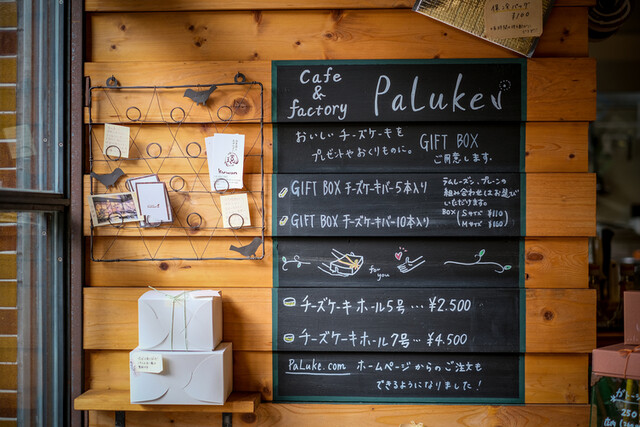 Cafe
&
factory
PaLuke
おいしい チーズケーキを
プレゼントや おくりものに。
GIFT BOX
ご用意します。
GIFT BOX チーズケーキバー5本入り
GIFT BOX チーズケーキバー10本入り
ラムレーズン、プレーンの
組み合わせはお選び
いただけます。
BOX (Sサイズ ¥110)
(Mサイズ ¥160)
for you
チーズケーキ ホール5号 … ¥2.500
チーズケーキ ホール7号 … ¥4.500
PaLuke.com ホームページ からの ご注文も
できるようになりました!
¥100
250